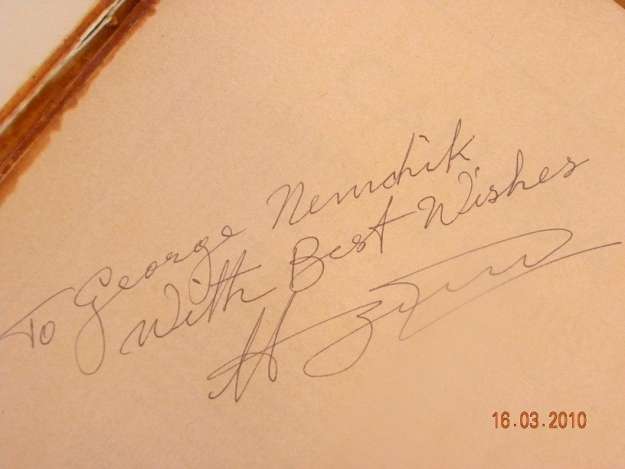 To George Nemchik
With Best Wishes
16.03.2010